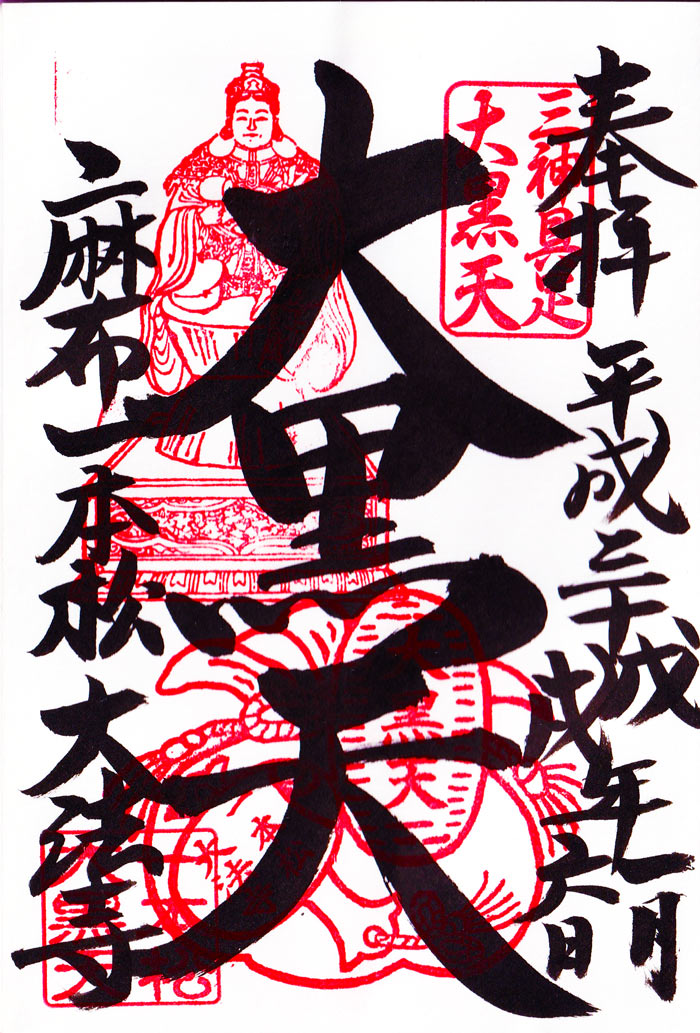 奉拝
平成三十戊戌年一月六日
三神具足
大黒天
大黒天
大黒天
麻布一本松 大法寺